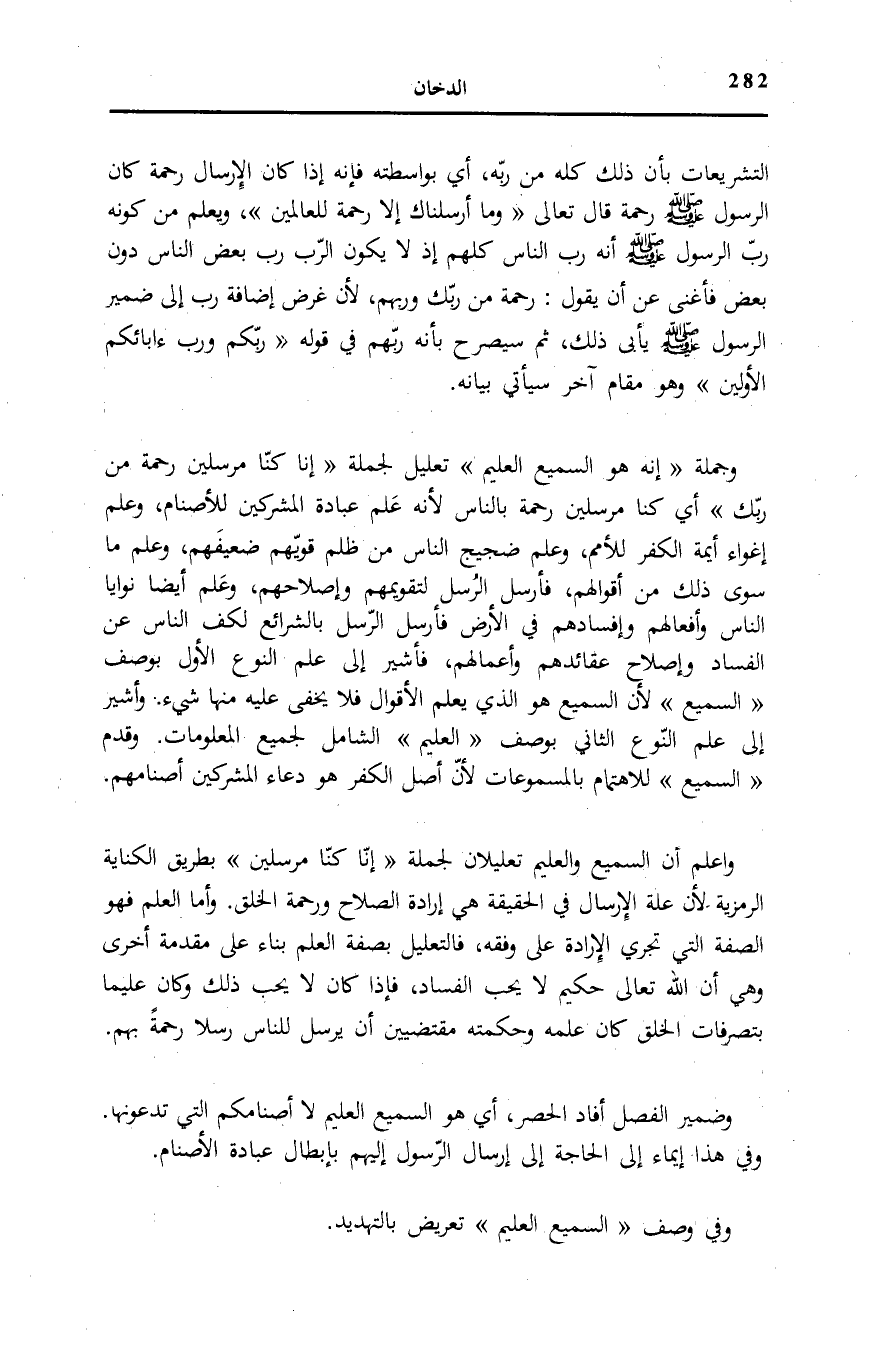 282
الدخان
التشريعات بأن ذلك كله من ربّه، أي بواسطته فإنه إذا كان الإرسال رحمة كان
الرسول ﷺ رحمة قال تعالى « وما أرسلناك إلا رحمة للعالمين »، ويعلم من كونه
ربّ الرسول ﷺ أنه رب الناس كلهم إذ لا يكون الرّب رب بعض الناس دون
بعض فأغنى عن أن يقول : رحمة من ربّك وربهم، لأن غرض إضافة رب إلى ضمير
الرسول ﷺ يأبى ذلك، ثم سيصرح بأنه ربّهم في قوله « ربّكم ورب ءابائكم
الأولين » وهو مقام آخر سيأتي بيانه.
وجملة « إنه هو السميع العليم » تعليل لجملة « إنا كنّا مرسلين رحمة من
ربّك » أي كنا مرسلين رحمة بالناس لأنه عَلم عبادة المشركين للأصنام، وعلم
إغواء أيمة الكفر للأمم، وعلم ضجيج الناس من ظلم قويّهم ضعيفَهم، وعلم ما
سوى ذلك من أقوالهم، فأرسل الرُسل لتقويمهم وإصلاحهم، وعَلم أيضا نوايا
الناس وأفعالهم وإفسادهم في الأرض فأرسل الرّسل بالشرائع لكف الناس عن
الفساد وإصلاح عقائدهم وأعمالهم، فأشير إلى علم النوع الأول بوصف
« السميع » لأن السميع هو الذي يعلم الأقوال فلا يخفى عليه منها شيء. وأشير
إلى علم النّوع الثاني بوصف « العليم » الشامل لجميع المعلومات. وقدم
« السميع » للاهتمام بالمسموعات لأنّ أصل الكفر هو دعاء المشركين أصنامهم.
واعلم أن السميع والعليم تعليلان لجملة « إنّا كنّا مرسلين » بطريق الكناية
الرمزية لأن علة الإرسال في الحقيقة هي إرادة الصلاح ورحمة الخلق. وأما العلم فهو
الصفة التي تجري الإرادة على وفقه، فالتعليل بصفة العلم بناء على مقدمة أخرى
وهي أن الله تعالى حكيم لا يحب الفساد، فإذا كان لا يحب ذلك وكان عليما
بتصرفات الخلق كان علمه وحكمته مقتضيين أن يرسل للناس رسلا رحمةً بهم.
وضمير الفصل أفاد الحصر، أي هو السميع العليم لا أصنامكم التي تدعونها.
وفي هذا إيماء إلى الحاجة إلى إرسال الرّسول إليهم بإبطال عبادة الأصنام.
وفي وصف « السميع العليم » تعريض بالتهديد.